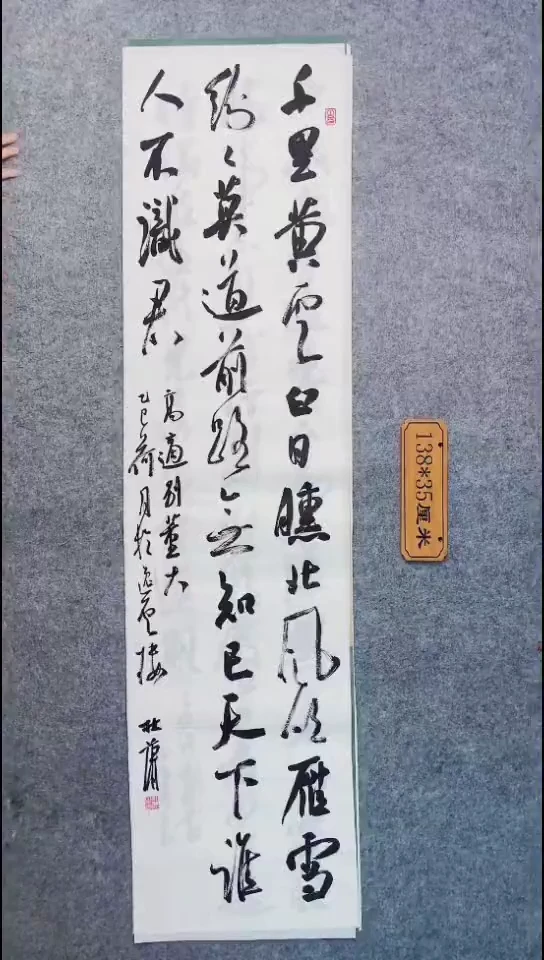 千里黄雲白日曛北風吹雁雪
紛々莫道前路無知己天下誰
人不識君
高適別董大
乙巳荷月於逸雲樓 杜
138*35厘米